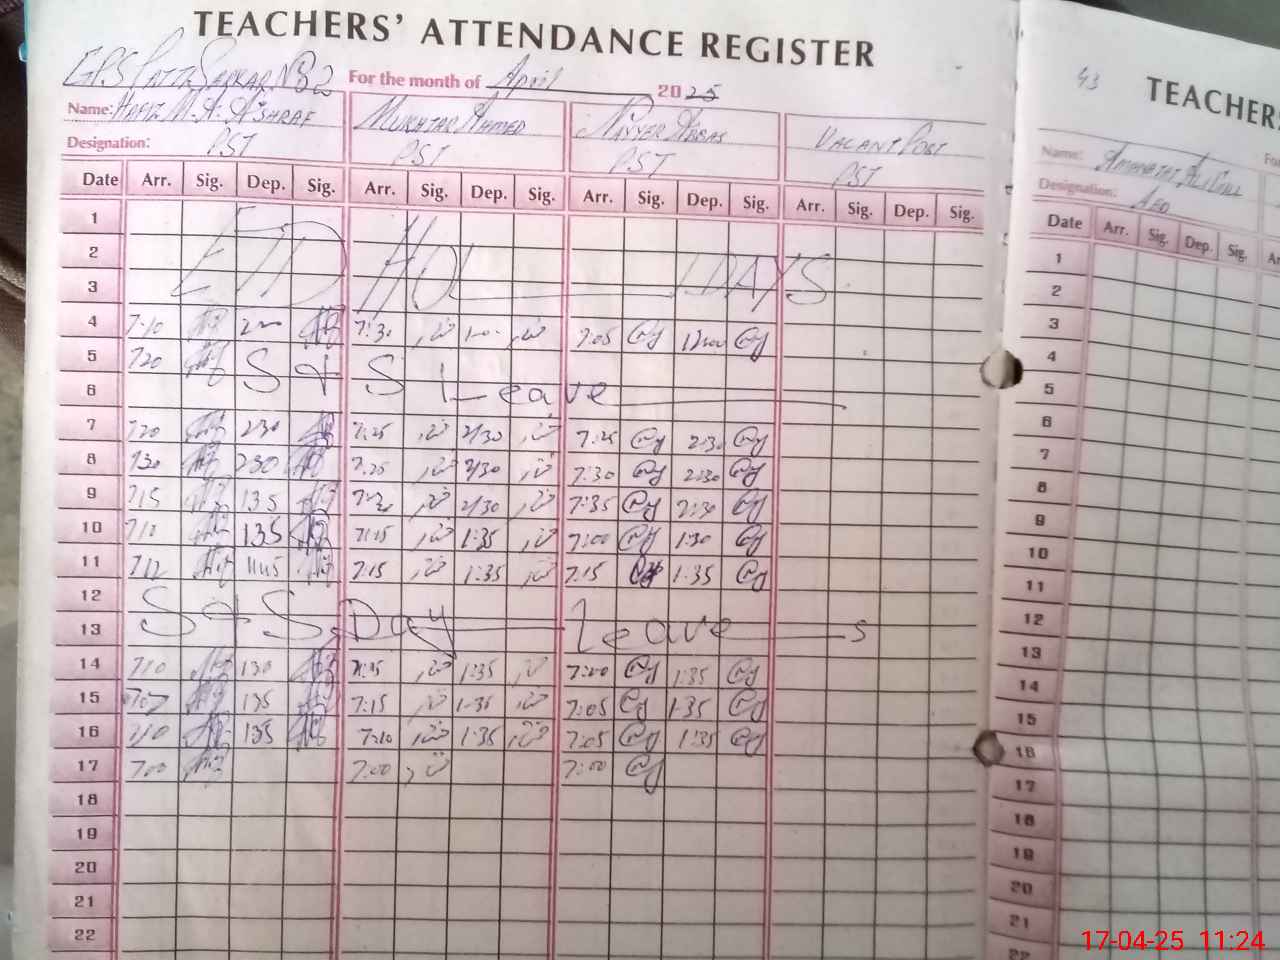 TEACHERS' ATTENDANCE REGISTER
For the month of April 2025
Name: HAFIZ M. A. ASHRAF MUKHTAR AHMED NAYYER ABBAS VACANT POST
Designation: PST PST PST PST
Date Arr. Sig. Dep. Sig. Arr. Sig. Dep. Sig. Arr. Sig. Dep. Sig. Arr. Sig. Dep. Sig.
1
2 EID HOLIDAYS
3
4 7:10 7:30 7:05 12:00
5 7:20
6 S & S Leave
7 7:20 2:30 7:25 2/30 7:25 2:30
8 7:30 2:30 7:25 2/30 7:30 2:30
9 7:15 1:35 2/30 7:35 2:30
10 7:10 1:35 7:15 1:35 7:00 1:30
11 7:12 11:45 7:15 1:35 7:15 1:35
12
13 S & S Day Leave s
14 7:10 1:30 1:35 7:00 1:35
15 7:07 1:35 7:15 1:35 7:05 1:35
16 7:10 1:35 7:10 1:35 7:05 1:35
17 7:00 7:00 7:00
18
19
20
21
22
43
TEACHERS
Name: AMANAT ALI GILL
Designation: AEO
Date Arr. Sig. Dep. Sig.
1
2
3
4
5
6
7
8
9
10
11
12
13
14
15
16
17
18
19
20
21
22
17-04-25 11:24